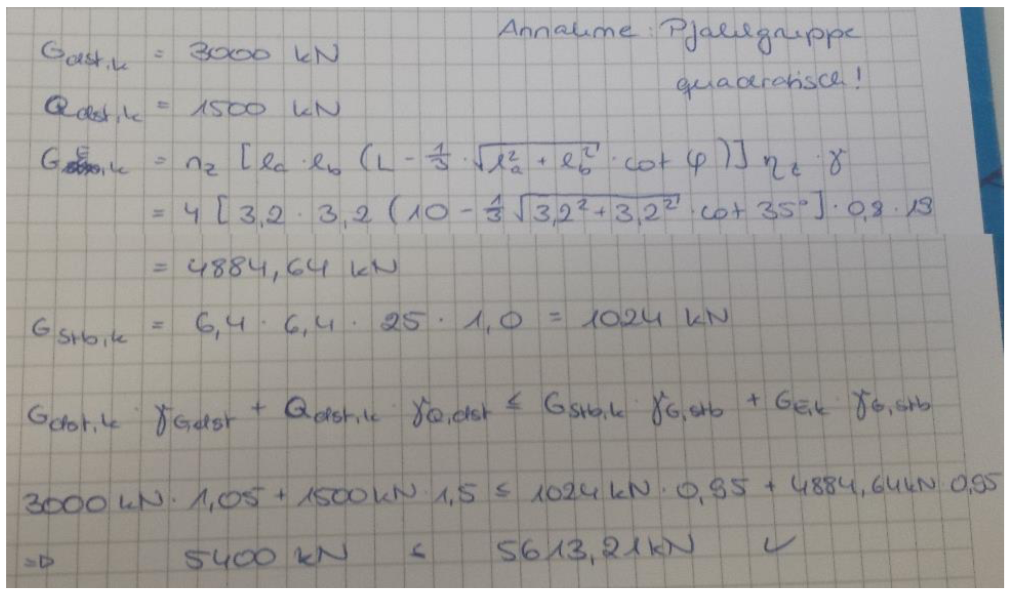 Annahme: Pfahlgruppe
quadratisch!
G_dst,k = 3000 kN
Q_dst,k = 1500 kN
G_E,k = n_z [l_a · l_b (L - 1/3 · √(l_a² + l_b²) · cot φ)] η_z · γ
= 4 [3,2 · 3,2 (10 - 1/3 √(3,2² + 3,2²) · cot 35°] · 0,8 · 19
= 4884,64 kN
G_Stb,k = 6,4 · 6,4 · 25 · 1,0 = 1024 kN
G_dst,k · γ_G,dst + Q_dst,k · γ_Q,dst ≤ G_Stb,k · γ_G,stb + G_E,k · γ_G,stb
3000 kN · 1,05 + 1500 kN · 1,5 ≤ 1024 kN · 0,95 + 4884,64 kN · 0,95
=> 5400 kN ≤ 5613,21 kN ✓